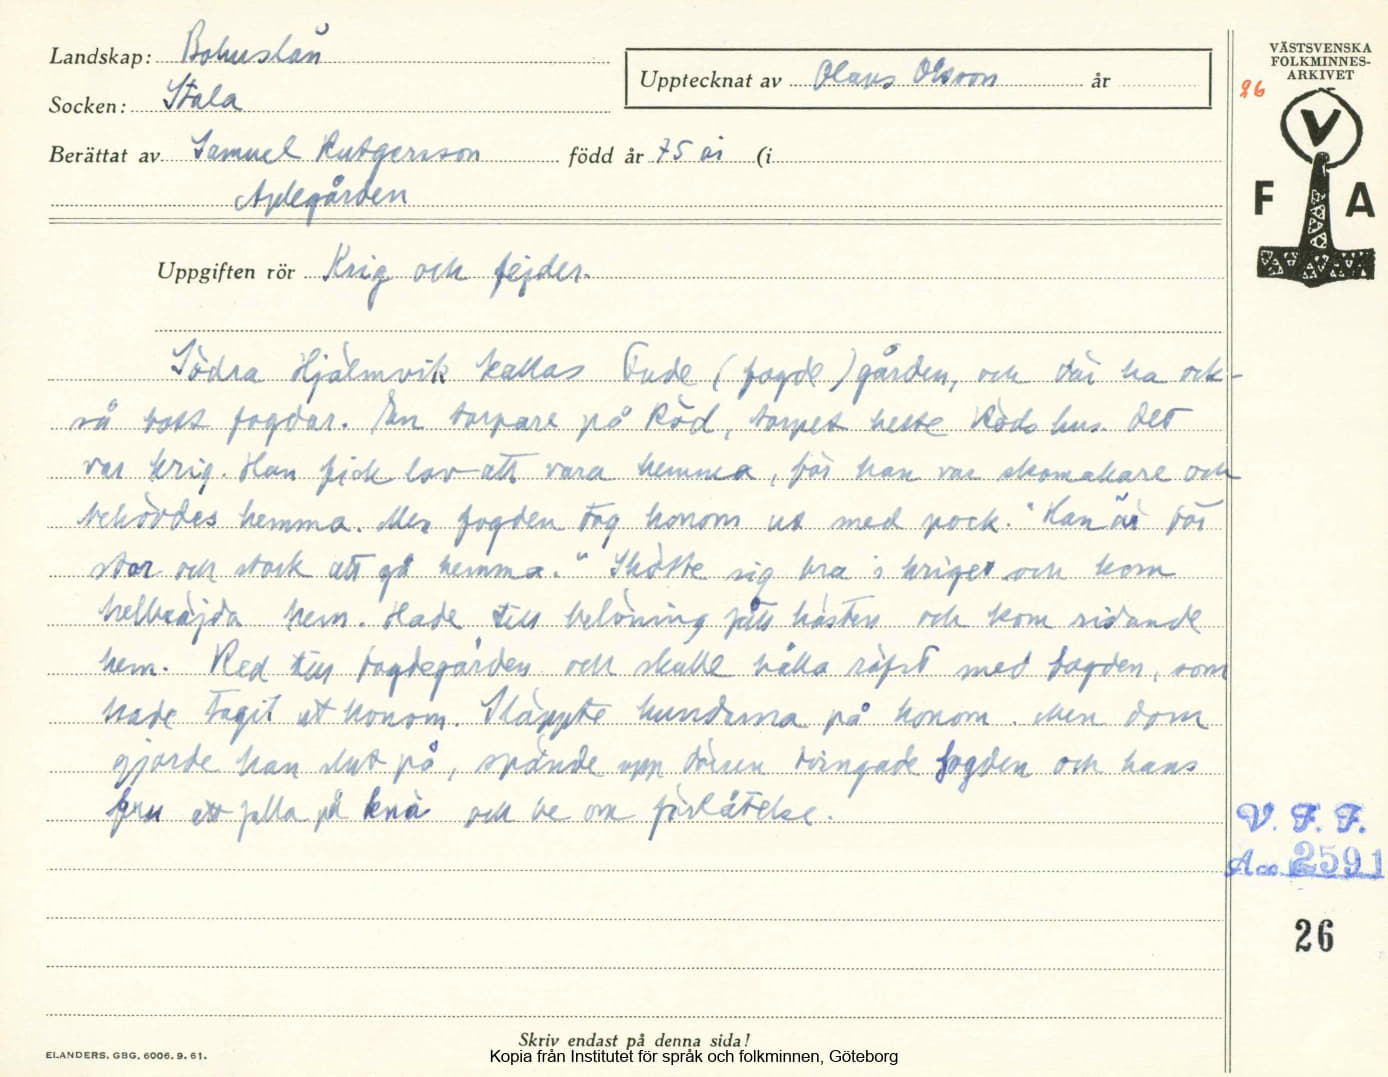 Landskap: Bohuslän
Socken: Stala
Upptecknat av Olaus Olsson år
VÄSTSVENSKA
FOLKMINNES-
ARKIVET
26
V
F A
Berättat av Samuel Rutgersson född år 75 år (i
Aplegården
Uppgiften rör Krig och fejder.
Södra Hjälmvik kallas Fude (fogde) gården, och där ha ock-
så bott fogdar. En torpare på Röd, torpet hette Röds hus. Det
var krig. Han fick lov att vara hemma, för han var skomakare och
behövdes hemma. Men fogden tog honom ut med pock. "Han är för
stor och stark att gå hemma." Skötte sig bra i kriget och kom
helbrägda hem. Hade till belöning fått hästen och kom ridande
hem. Red till fogdegården och skulle hålla räfst med fogden, som
hade tagit ut honom. Släppte hundarna på honom. Men dom
gjorde han slut på, spände upp dörren tvingade fogden och hans
fru att falla på knä och be om förlåtelse.
V. F. F.
Acc. 2591
26
Skriv endast på denna sida!
ELANDERS, GBG, 6006. 9. 61.
Kopia från Institutet för språk och folkminnen, Göteborg